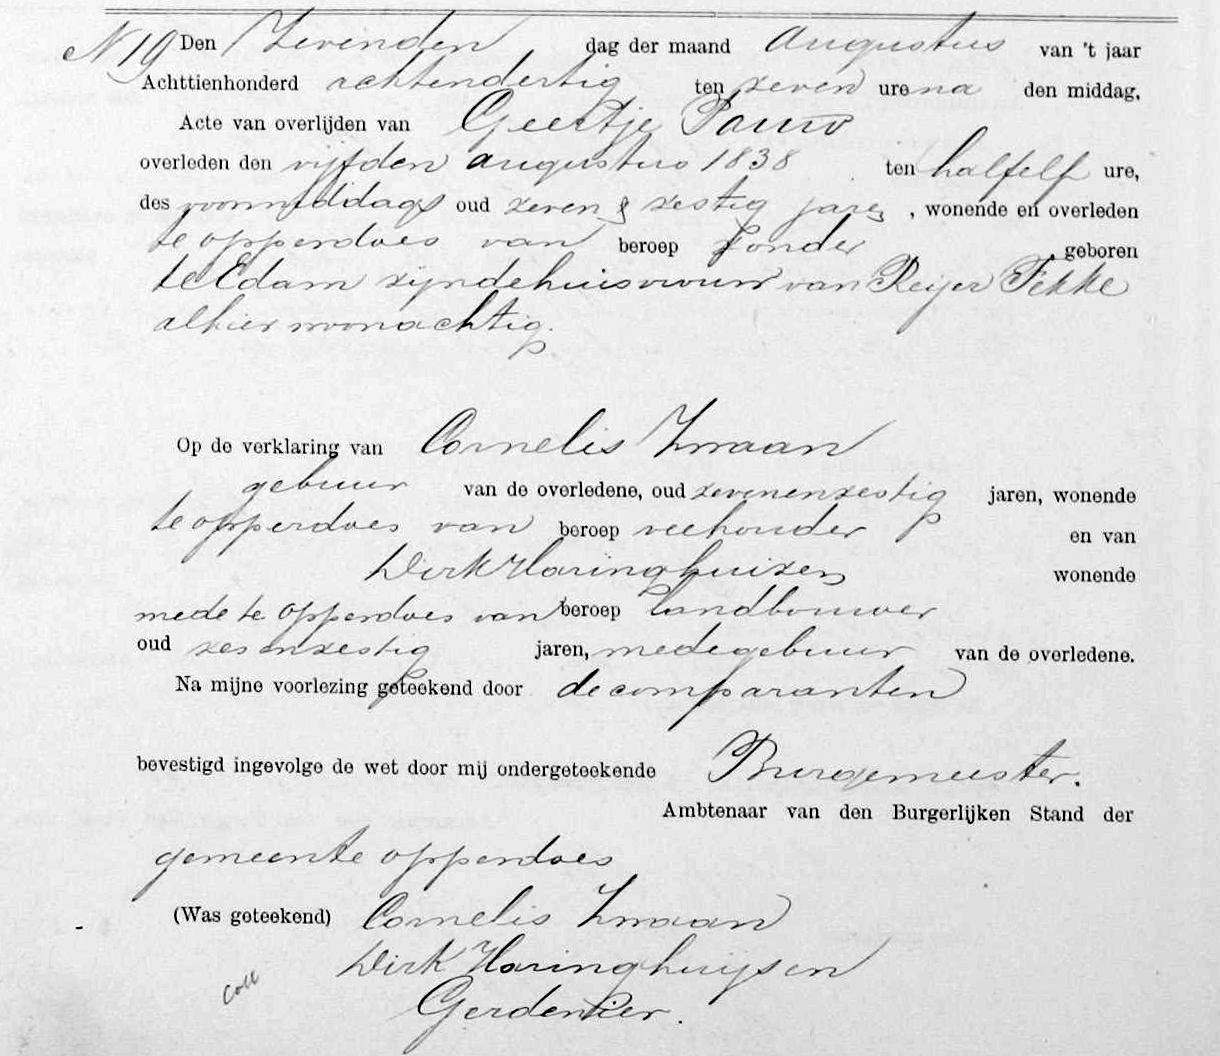 N 19 Den Zevenden dag der maand Augustus van 't jaar
Achttienhonderd achtendertig ten zeven ure na den middag,
Acte van overlijden van Geertje Pauw
overleden den vijfden augustus 1838 ten halfelf ure,
des voormiddags oud zeven & zestig jare, wonende en overleden
te opperdoes van beroep zonder geboren
te Edam zijnde huisvrouw van Reijer Fekke
alhier woonachtig.
Op de verklaring van Cornelis Zwaan
gebuur van de overledene, oud zevenenzestig jaren, wonende
te opperdoes van beroep veehouder en van
Dirk Haringhuizen wonende
mede te opperdoes van beroep landbouwer
oud zesenzestig jaren, medegebuur van de overledene.
Na mijne voorlezing geteekend door de comparanten
bevestigd ingevolge de wet door mij ondergeteekende Burgemeester.
Ambtenaar van den Burgerlijken Stand der
gemeente opperdoes
(Was geteekend) Cornelis Zwaan
Dirk Haringhuysen
Coll